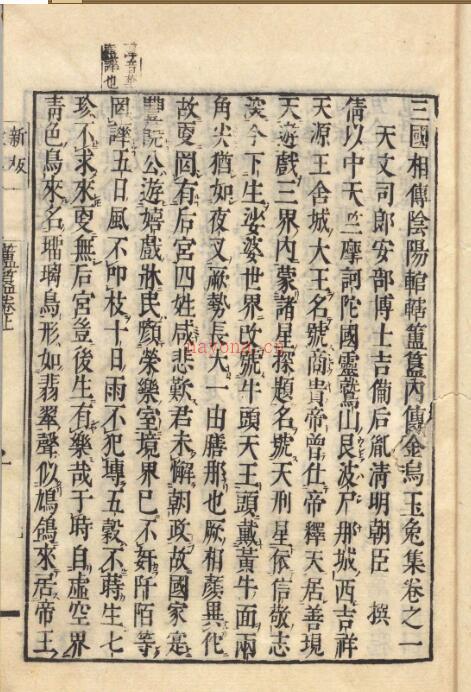 三國相傳陰陽輨轄簠簋內傳金烏玉兔集卷之一
天文司郎安部博士吉備后胤淸明朝臣 撰
倩以中天竺摩訶陀國靈鷲山艮波尸那城西吉祥
天源王舍城大王名號商貴帝曾仕帝釋天居善現
天遊戲三界內蒙諸星探題名號天刑星依信敬志
深今下生娑婆世界改號牛頭天王頭戴黃牛面兩
角尖猶如夜叉厥勢長大一由膳那也厥相顏異他
故更罔有后宮四姓咸悲歎君未懈朝政故國家寔
豐 公遊嬉戲牀民顏榮樂室境界已不奸阡陌等
罔諍五日風不叩枝十日雨不犯塼五穀不蒔生七
珍不求來更無后宮豈後生有樂哉于時自虛空界
靑色鳥來名瑠璃鳥形如翡翠聲似鳩鴿來居帝王
新板
簠簋卷上
nayona.cn